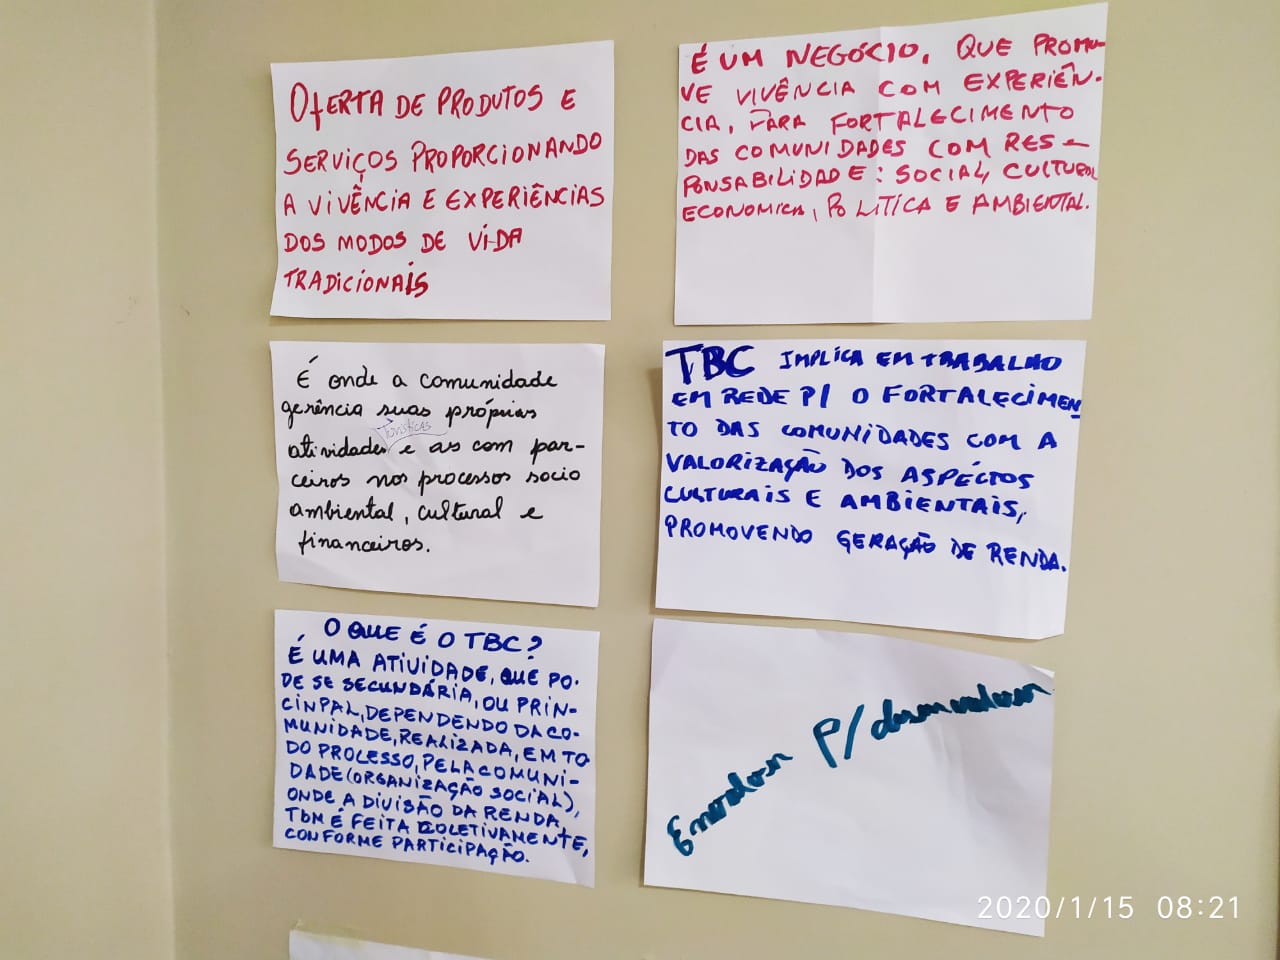 OfERTA DE PRODUTOS E
SERVIÇOS PROPORCIONANDO
A VIVÊNCIA E EXPERIÊNCIAS
DOS MODOS DE VIDA
TRADICIONAIS
É UM NEGÓCIO, QUE PROMO-
VE VIVÊNCIA COM EXPERIÊN-
CIA, PARA FORTALECIMENTO
DAS COMUNIDADES COM RES-
PONSABILIDADE: SOCIAL, CULTURAL
ECONOMICA, POLITICA E AMBIENTAL.
É onde a comunidade
gerência suas próprias
Turísticas
atividades e as com par-
ceiros nos processos socio
ambiental, cultural e
financeiros.
TBC IMPLICA EM TRABALHO
EM REDE P/ O FORTALECIMEN
TO DAS COMUNIDADES COM A
VALORIZAÇÃO DOS ASPÉCTOS
CULTURAIS E AMBIENTAIS,
PROMOVENDO GERAÇÃO DE RENDA.
O QUE É O TBC?
É UMA ATIVIDADE, QUE PO-
DE SE SECUNDÁRIA, OU PRIN-
CINPAL, DEPENDENDO DA CO-
MUNIDADE, REALIZADA, EM TO
DO PROCESSO, PELA COMUNI-
DADE (ORGANIZAÇÃO SOCIAL),
ONDE A DIVISÃO DA RENDA
TBM É FEITA COLETIVAMENTE,
CONFORME PARTICIPAÇÃO.
P/
2020/1/15 08:21